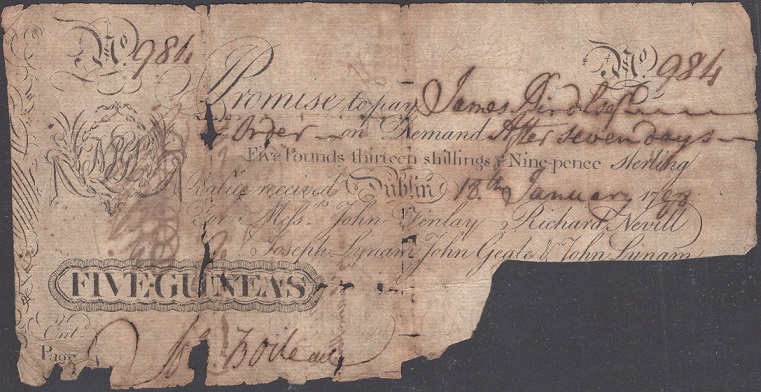 No. 984 No. 984
Promise to pay James
Order on Demand After seven days
Five Pounds thirteen shillings & Nine-pence Sterling
Value received Dublin 18th January 1798
For Messrs John Finlay, Richard Nevill
Joseph Lynam John Geale & John Lynam
FIVE·GUINEAS
Entd
Page